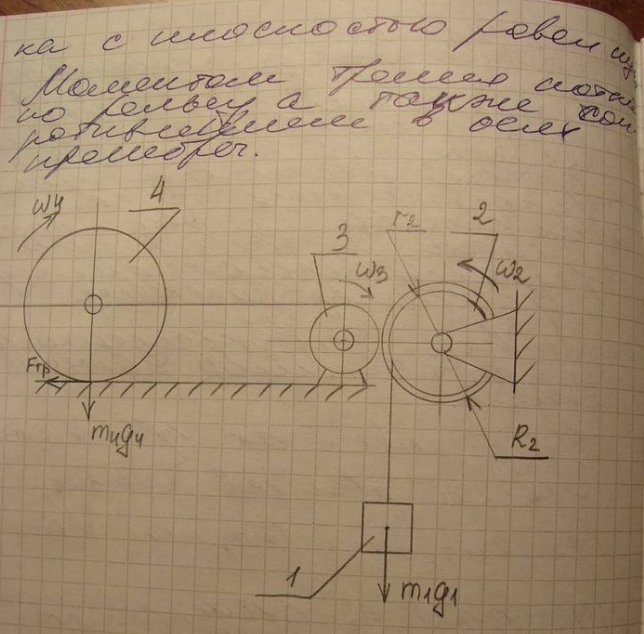 ка с плоскостью равен
Моментом трения
по рельсу а также
в осях
пренебреч.
ω4
4
3
ω3
r2
2
ω2
Fтр
m4g4
R2
1
m1g1